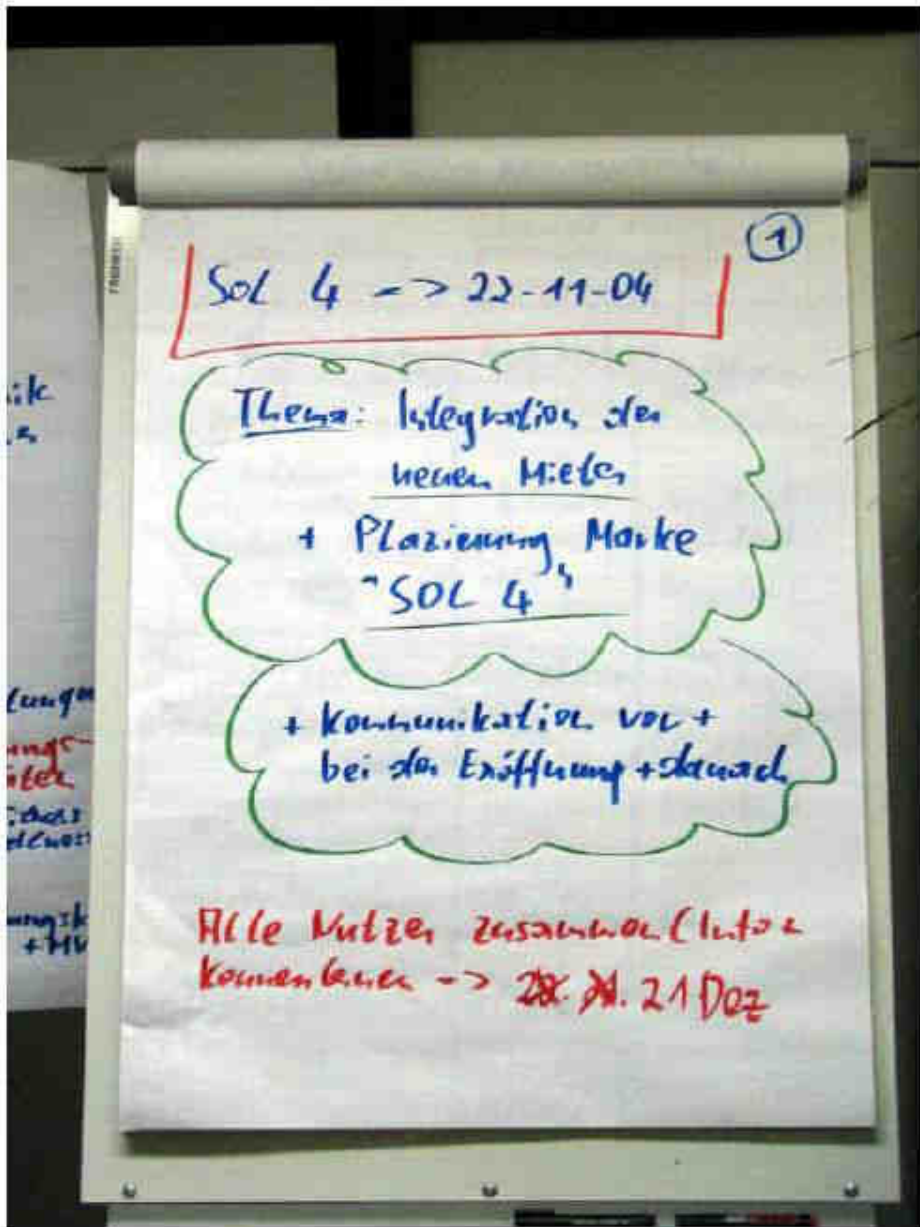 1
SOL 4 -> 22-11-04
Thema: Integration der
neuen Mieter
+ Plazierung Marke
"SOL 4"
+ Kommunikation vor +
bei der Eröffnung + danach
Alle Nutzer zusammen (Infor
kennenlernen ->  21 Dez
ik
+ HV